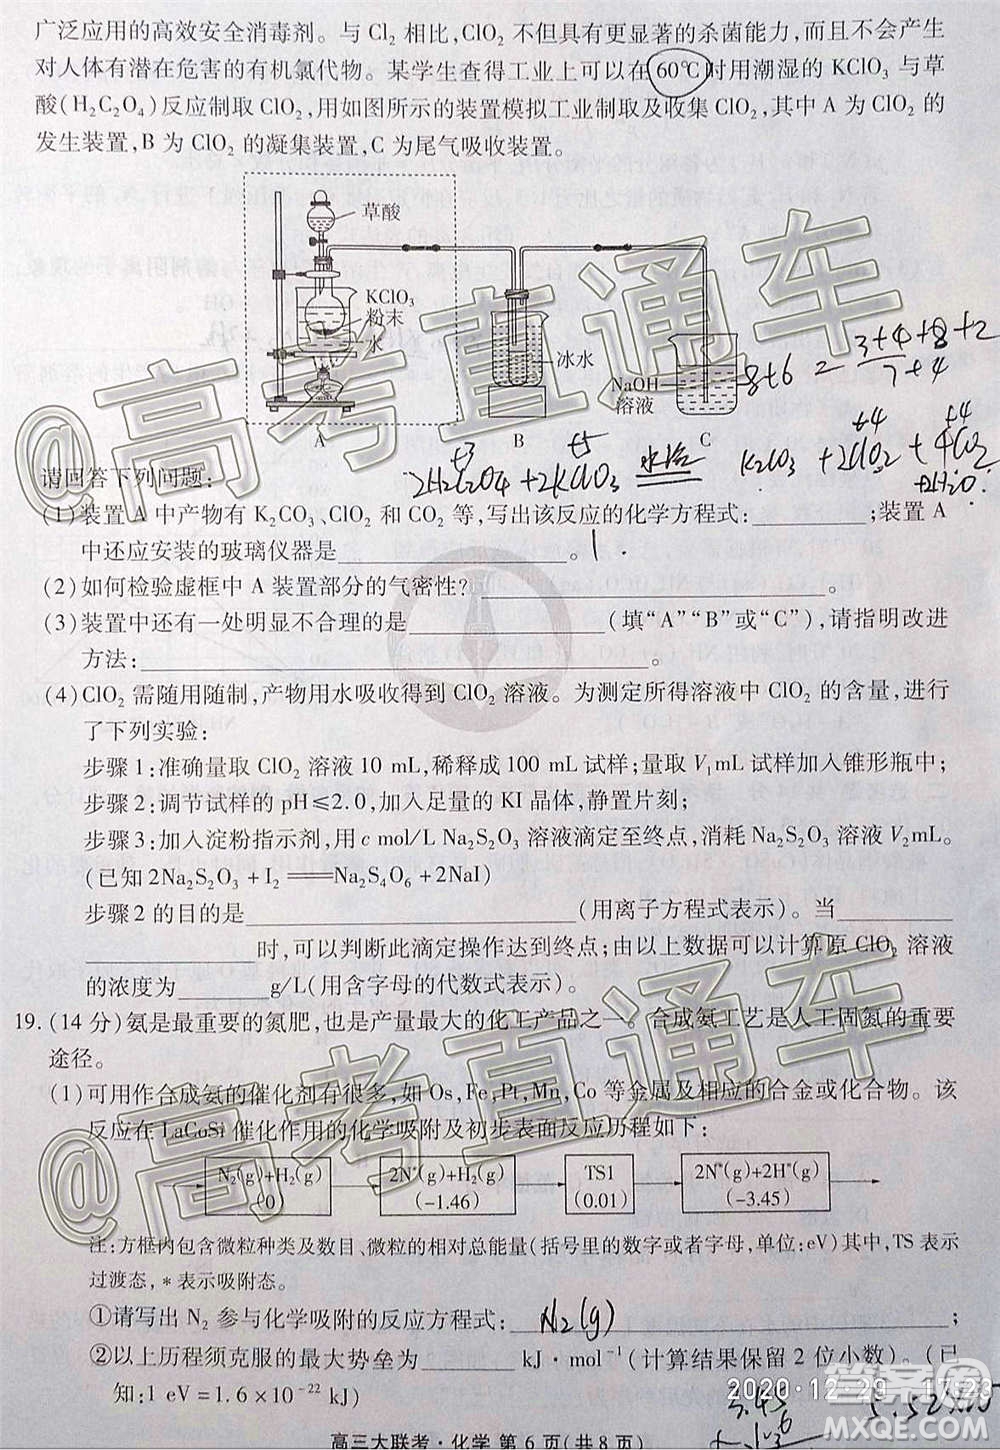 广泛应用的高效安全消毒剂。与 Cl₂ 相比,ClO₂ 不但具有更显著的杀菌能力,而且不会产生
对人体有潜在危害的有机氯代物。某学生查得工业上可以在 60℃时用潮湿的 KClO₃ 与草
酸(H₂C₂O₄)反应制取 ClO₂,用如图所示的装置模拟工业制取及收集 ClO₂,其中 A 为 ClO₂ 的
发生装置,B 为 ClO₂ 的凝集装置,C 为尾气吸收装置。
草酸
KClO₃
粉末
水
冰水
NaOH
溶液
A B C
8+6 = 3+4+8+2
7+4
+3 +5 +4 +4
2H₂C₂O₄+2KClO₃ 水浴 K₂CO₃ +2ClO₂ +4CO₂
+2H₂O
请回答下列问题:
(1)装置 A 中产物有 K₂CO₃、ClO₂ 和 CO₂ 等,写出该反应的化学方程式:________;装置 A
中还应安装的玻璃仪器是________。
(2)如何检验虚框中 A 装置部分的气密性?________。
(3)装置中还有一处明显不合理的是________(填“A”“B”或“C”),请指明改进
方法:________。
(4)ClO₂ 需随用随制,产物用水吸收得到 ClO₂ 溶液。为测定所得溶液中 ClO₂ 的含量,进行
了下列实验:
步骤 1:准确量取 ClO₂ 溶液 10 mL,稀释成 100 mL 试样;量取 V₁mL 试样加入锥形瓶中;
步骤 2:调节试样的 pH≤2.0,加入足量的 KI 晶体,静置片刻;
步骤 3:加入淀粉指示剂,用 c mol/L Na₂S₂O₃ 溶液滴定至终点,消耗 Na₂S₂O₃ 溶液 V₂mL。
(已知 2Na₂S₂O₃+I₂══Na₂S₄O₆+2NaI)
步骤 2 的目的是________(用离子方程式表示)。当________
________时,可以判断此滴定操作达到终点;由以上数据可以计算原 ClO₂ 溶液
的浓度为________g/L(用含字母的代数式表示)。
19.(14 分)氨是最重要的氮肥,也是产量最大的化工产品之一。合成氨工艺是人工固氮的重要
途径。
(1)可用作合成氨的催化剂有很多,如 Os,Fe,Pt,Mn,Co 等金属及相应的合金或化合物。该
反应在 LaCoSi 催化作用的化学吸附及初步表面反应历程如下:
N₂(g)+H₂(g)
(0)
2N*(g)+H₂(g)
(-1.46)
TS1
(0.01)
2N*(g)+2H*(g)
(-3.45)
注:方框内包含微粒种类及数目、微粒的相对总能量(括号里的数字或者字母,单位:eV)其中,TS 表示
过渡态,*表示吸附态。
①请写出 N₂ 参与化学吸附的反应方程式:N₂(g);
②以上历程须克服的最大势垒为________kJ·mol⁻¹(计算结果保留 2 位小数)。(已
知:1 eV=1.6×10⁻²² kJ)
高三大联考·化学 第 6 页(共 8 页)
@高考直通车
@高考直通车
2020·12·29 17:23
答案圈
MXQE.COM